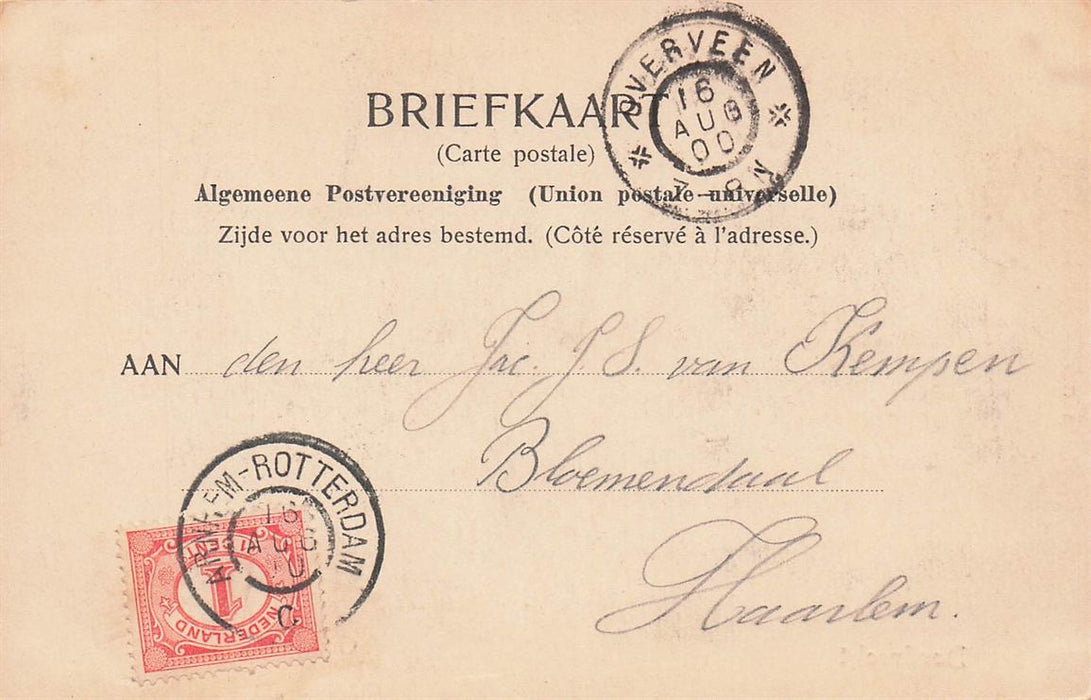 OVERVEEN
16
AUG
00
7-8 N
BRIEFKAART
(Carte postale)
Algemeene Postvereeniging (Union postale universelle)
Zijde voor het adres bestemd. (Côté réservé à l'adresse.)
AAN den heer Jac. J. S. van Kempen
Bloemendaal
Haarlem.
ARNHEM-ROTTERDAM
16
AUG
C
1 CENT
1
NEDERLAND